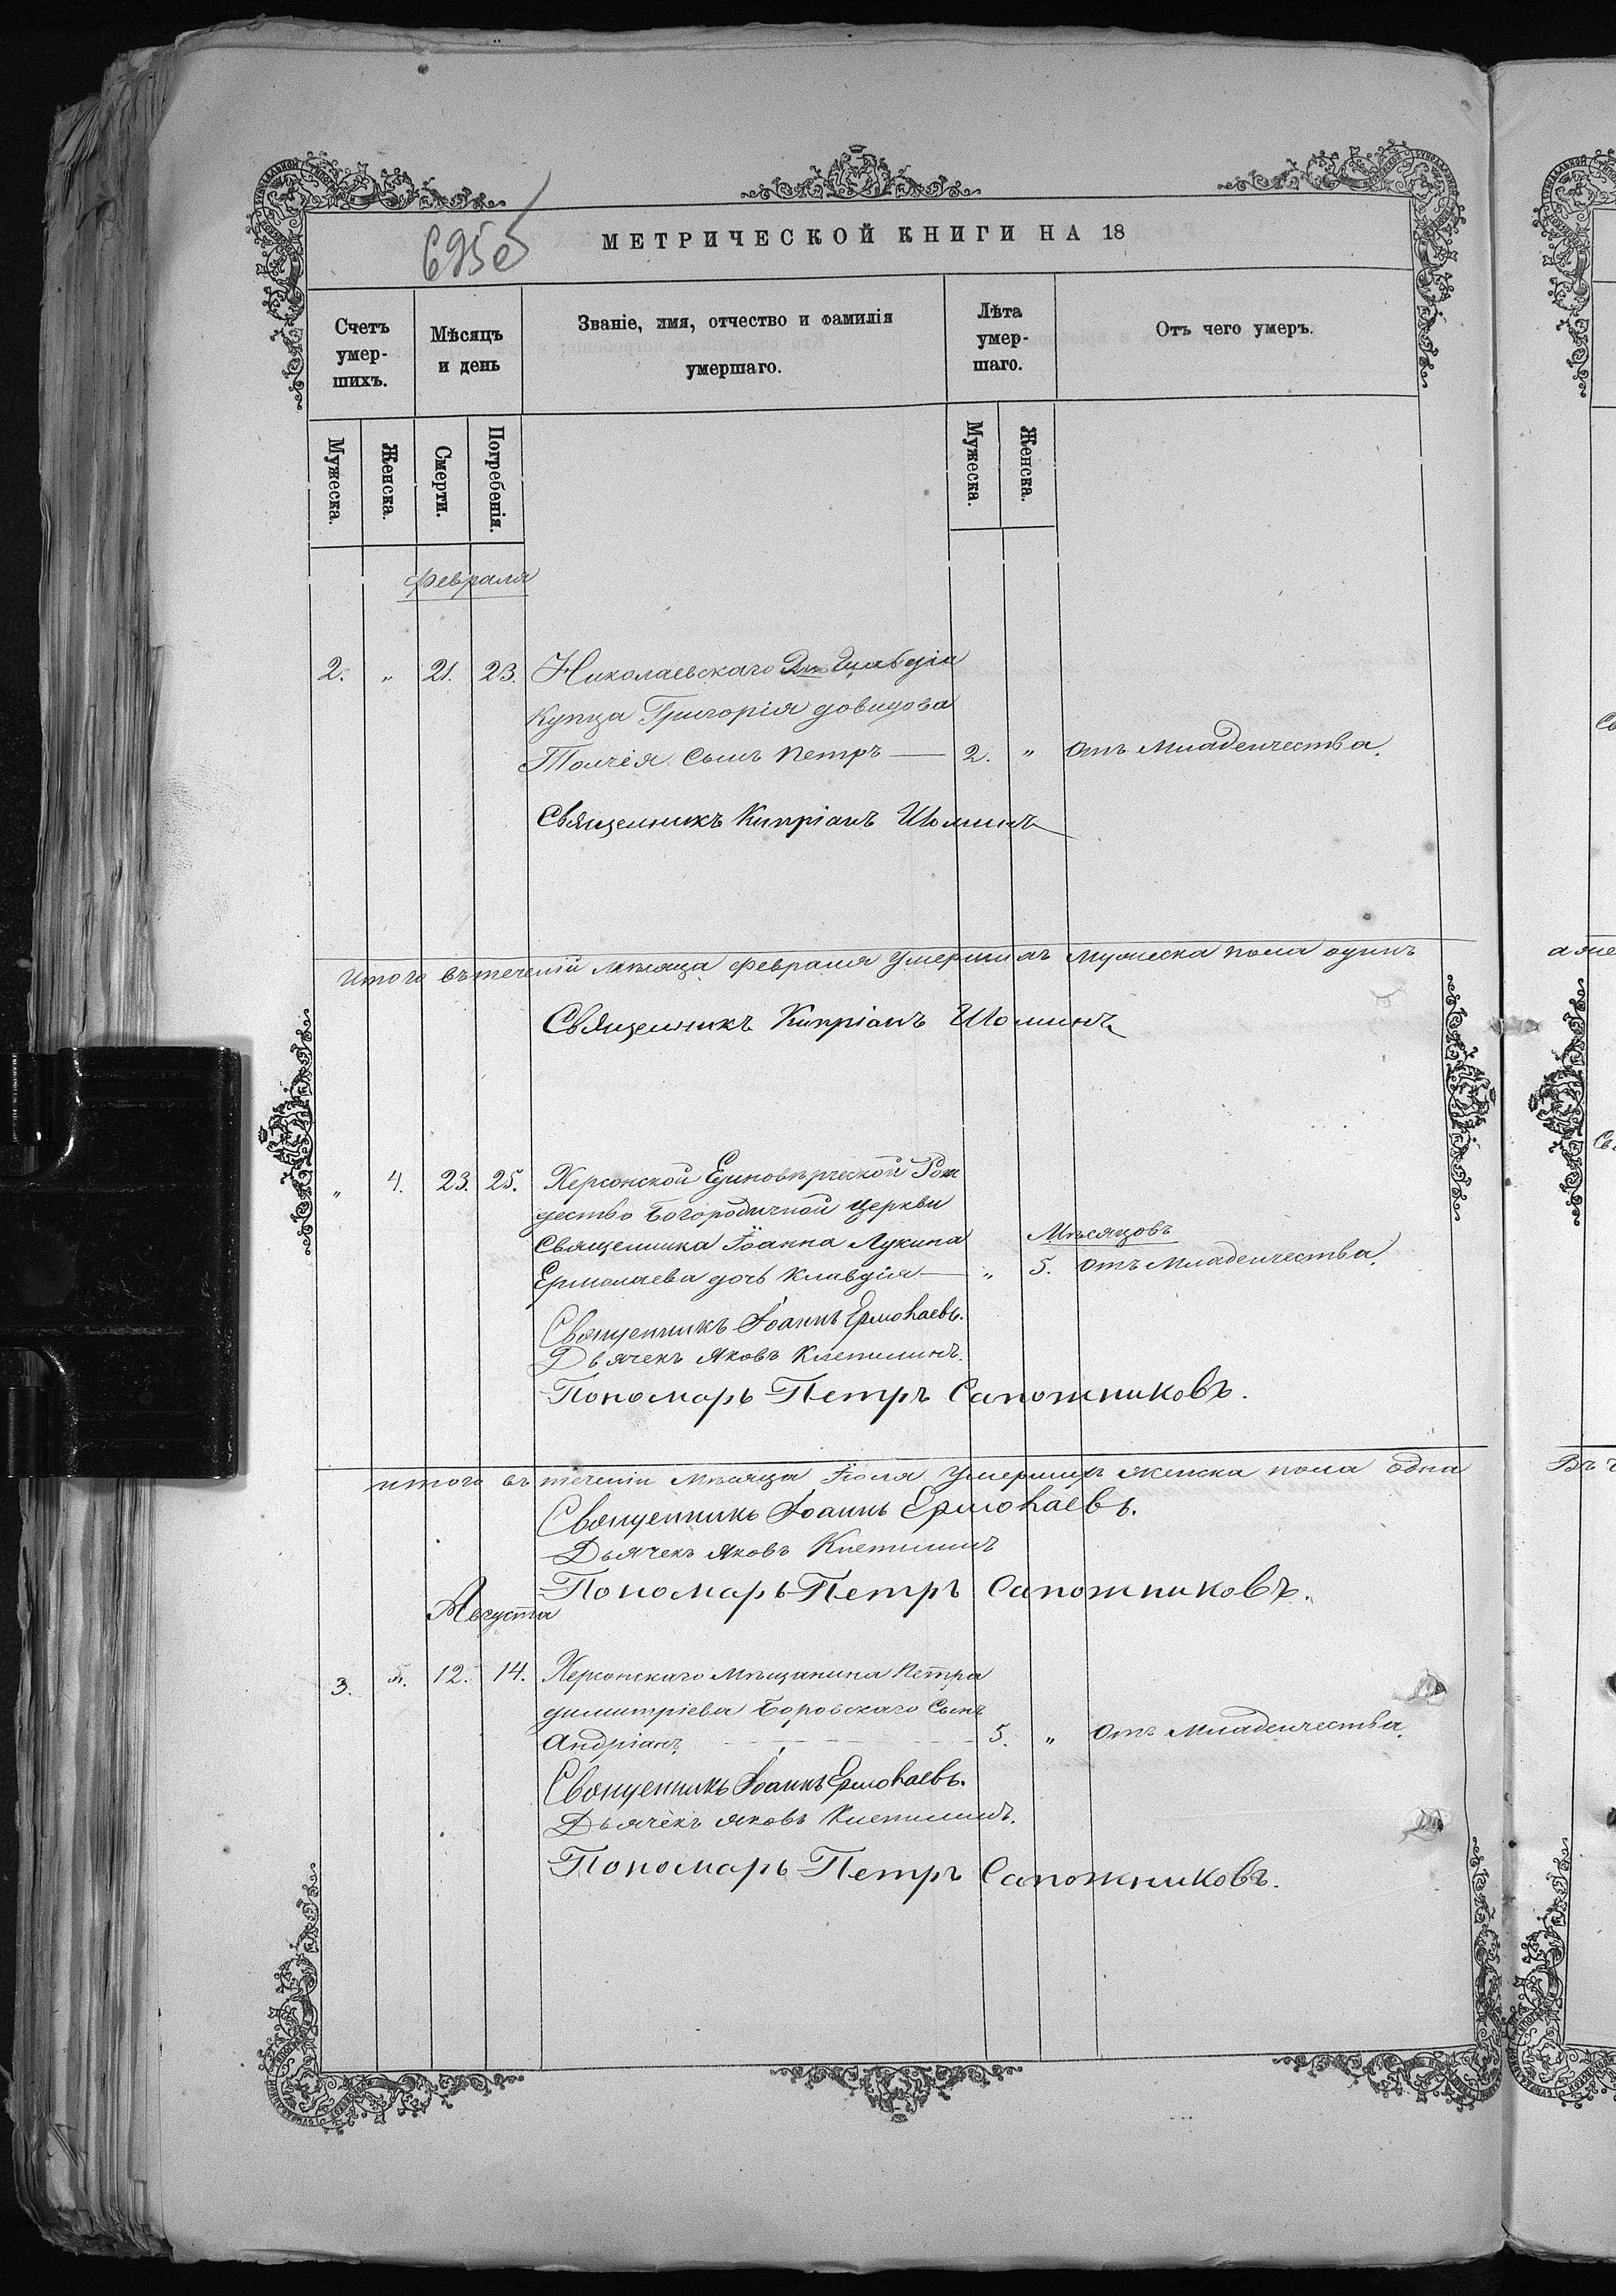 695об
МЕТРИЧЕСКОЙ КНИГИ НА 18
Счетъ умер-шихъ.
Мѣсяцъ и день
Званіе, имя, отчество и фамилія умершаго.
Лѣта умер-шаго.
Отъ чего умеръ.
Мужеска.
Женска.
Смерти.
Погребенія.
Мужеска.
Женска.
Февраля
2. „ 21. 23. Николаевскаго 2й Гильдіи
Купца Григорія довидова
сынъ Петръ — 2. „ отъ Младенчества.
Священникъ Кипріанъ Шоминъ
Итого въ теченіи мѣсяца февраля умершихъ мужеска пола одинъ
Священникъ Кипріанъ Шоминъ
„ 4. 23. 25. Херсонской Единовѣрческой Рож
дество Богородичной церкви
Священника Іоанна Лукина
Мѣсяцовъ
Ермолаева дочь Клавдія — „ 5. отъ Младенчества.
Священникъ Іоаннъ Ермолаевъ.
Дьячекъ Яковъ
Пономарь Петръ Сапожниковъ.
итого въ теченіи мѣсяца Іюля умершихъ женска пола одна
Священникъ Іоаннъ Ермолаевъ.
Дьячекъ Яковъ
Пономарь Петръ Сапожниковъ.
Августа
3. „ 12. 14. Херсонскаго мѣщанина Петра
димитріева Боровскаго Сынъ
Андріанъ 5. „ отъ Младенчества.
Священникъ Іоаннъ Ермолаевъ.
Дьячекъ Яковъ
Пономарь Петръ Сапожниковъ.